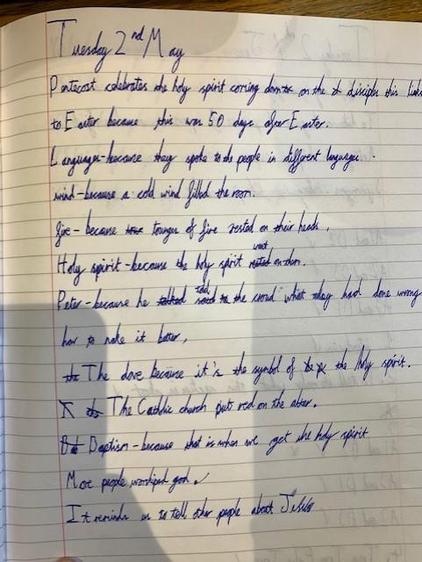 Tuesday 2nd May
Pentecost celebrates the holy spirit coming down on the disciples this links
to Easter because this was 50 days after Easter.
Languages-because they spoke to the people in different languages.
wind-because a cold wind filled the room.
fire- because tounges of fire rested on their heads,
Holy spirit-because the holy spirit went on them.
Peter-because he told to the crowd what they had done wrong
how to make it better,
The dove because it's the symbol of the holy spirit.
The Catholic church put red on the alter.
Baptism - because that is when we get the holy spirit
More people worshiped god.
It reminds us to tell other people about Jesus